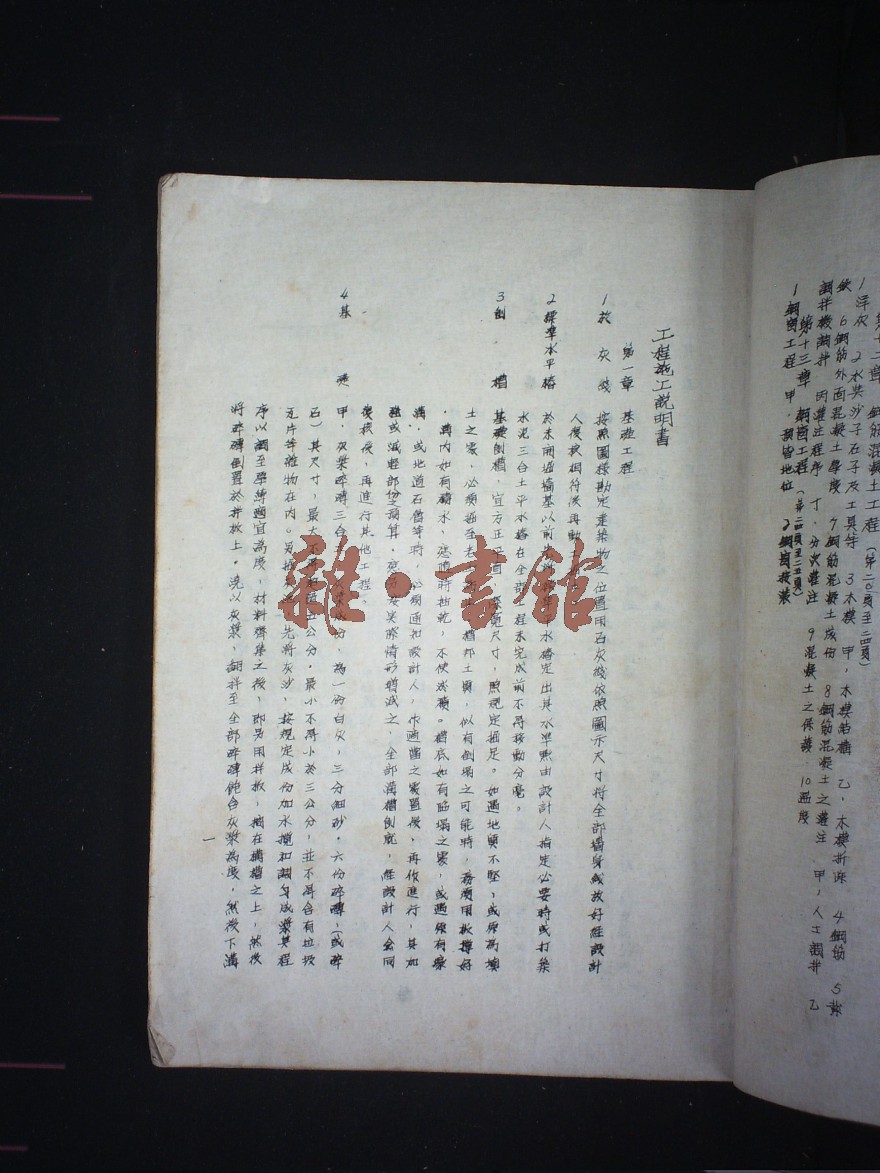 第十二章 鋼筋混凝土工程 (第二〇頁至二四頁)
1 洋灰 2 水與沙子石子及工具等 3 木模 甲,木模結構 乙,木模拆除 4 鋼筋 5 紮
鉄 6 鋼筋外面混凝土厚度 7 鋼筋混凝土成份 8 鋼筋混凝土之灌注 甲,人工調拌 乙
調拌機調拌 丙 灌注程序 丁,分次灌注 9 混凝土之保護 10 過度
第十三章 鋼窗工程 (第二四頁至二五頁)
1 鋼窗工程 甲, 地位 2 鋼窗按裝
工程施工説明書
第一章 基礎工程
1 放灰綫 按照圖樣勘定建築物之位置用石灰綫依照圖示尺寸将全部墻身綫放好経設計
人複核相符後再動
2 標準水平樁 於未開過墻基以前 水樁定出其水準点由設計人指定必要時或打築
水泥三合土平水樁在全部工程未完成前不得移動分毫。
3 刨槽 基礎刨槽,宜方正平直 深寬尺寸,照規定掘足。如遇地質不堅,或原為填
土之處,必須掘至老 槽邦土質,似有倒塌之可能時,務須用板撐好
,溝內如有積水,應隨時抽乾,不使或積。槽底如有陷塌之處,或遇原有暗
溝,或地道石舊等時,必須通知設計人,作適當之處置後,再作進行,其如
增或減輕部份之預算,應 按實際情形增減之,全部溝槽刨底,経設計人会同
複核後,再進行其他工程。
4 基礎 甲,灰漿碎磚三合 成份,為一份白灰,三分細砂。六份碎磚,(或碎
石)其尺寸,最大不得 五公分。最小不得小於三公分,並不得含有垃圾
瓦片等雜物在內。另 先將灰沙,按規定成份加水攪和調勻成漿其程
序以調至厚薄適宜為度,材料齊集之後,即另用拌板,擱在溝槽之上,然後
將碎磚倒置於拌板上。澆以灰漿,翻拌至全部碎磚飽含灰漿為度,然後下溝
一
雜·書館